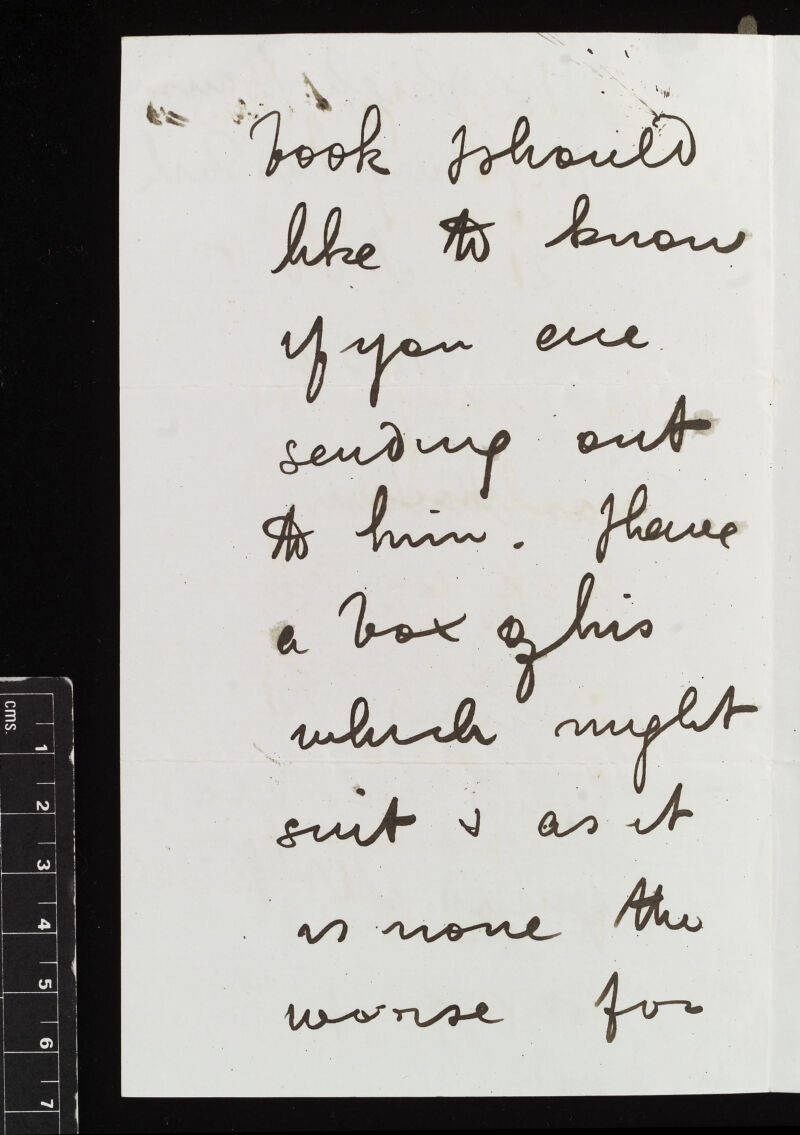 book I should
like to know
if you are
sending out
to him. I have
a box of his
which might
suit & as it
is none the
worse for
cms.
1
2
3
4
5
6
7